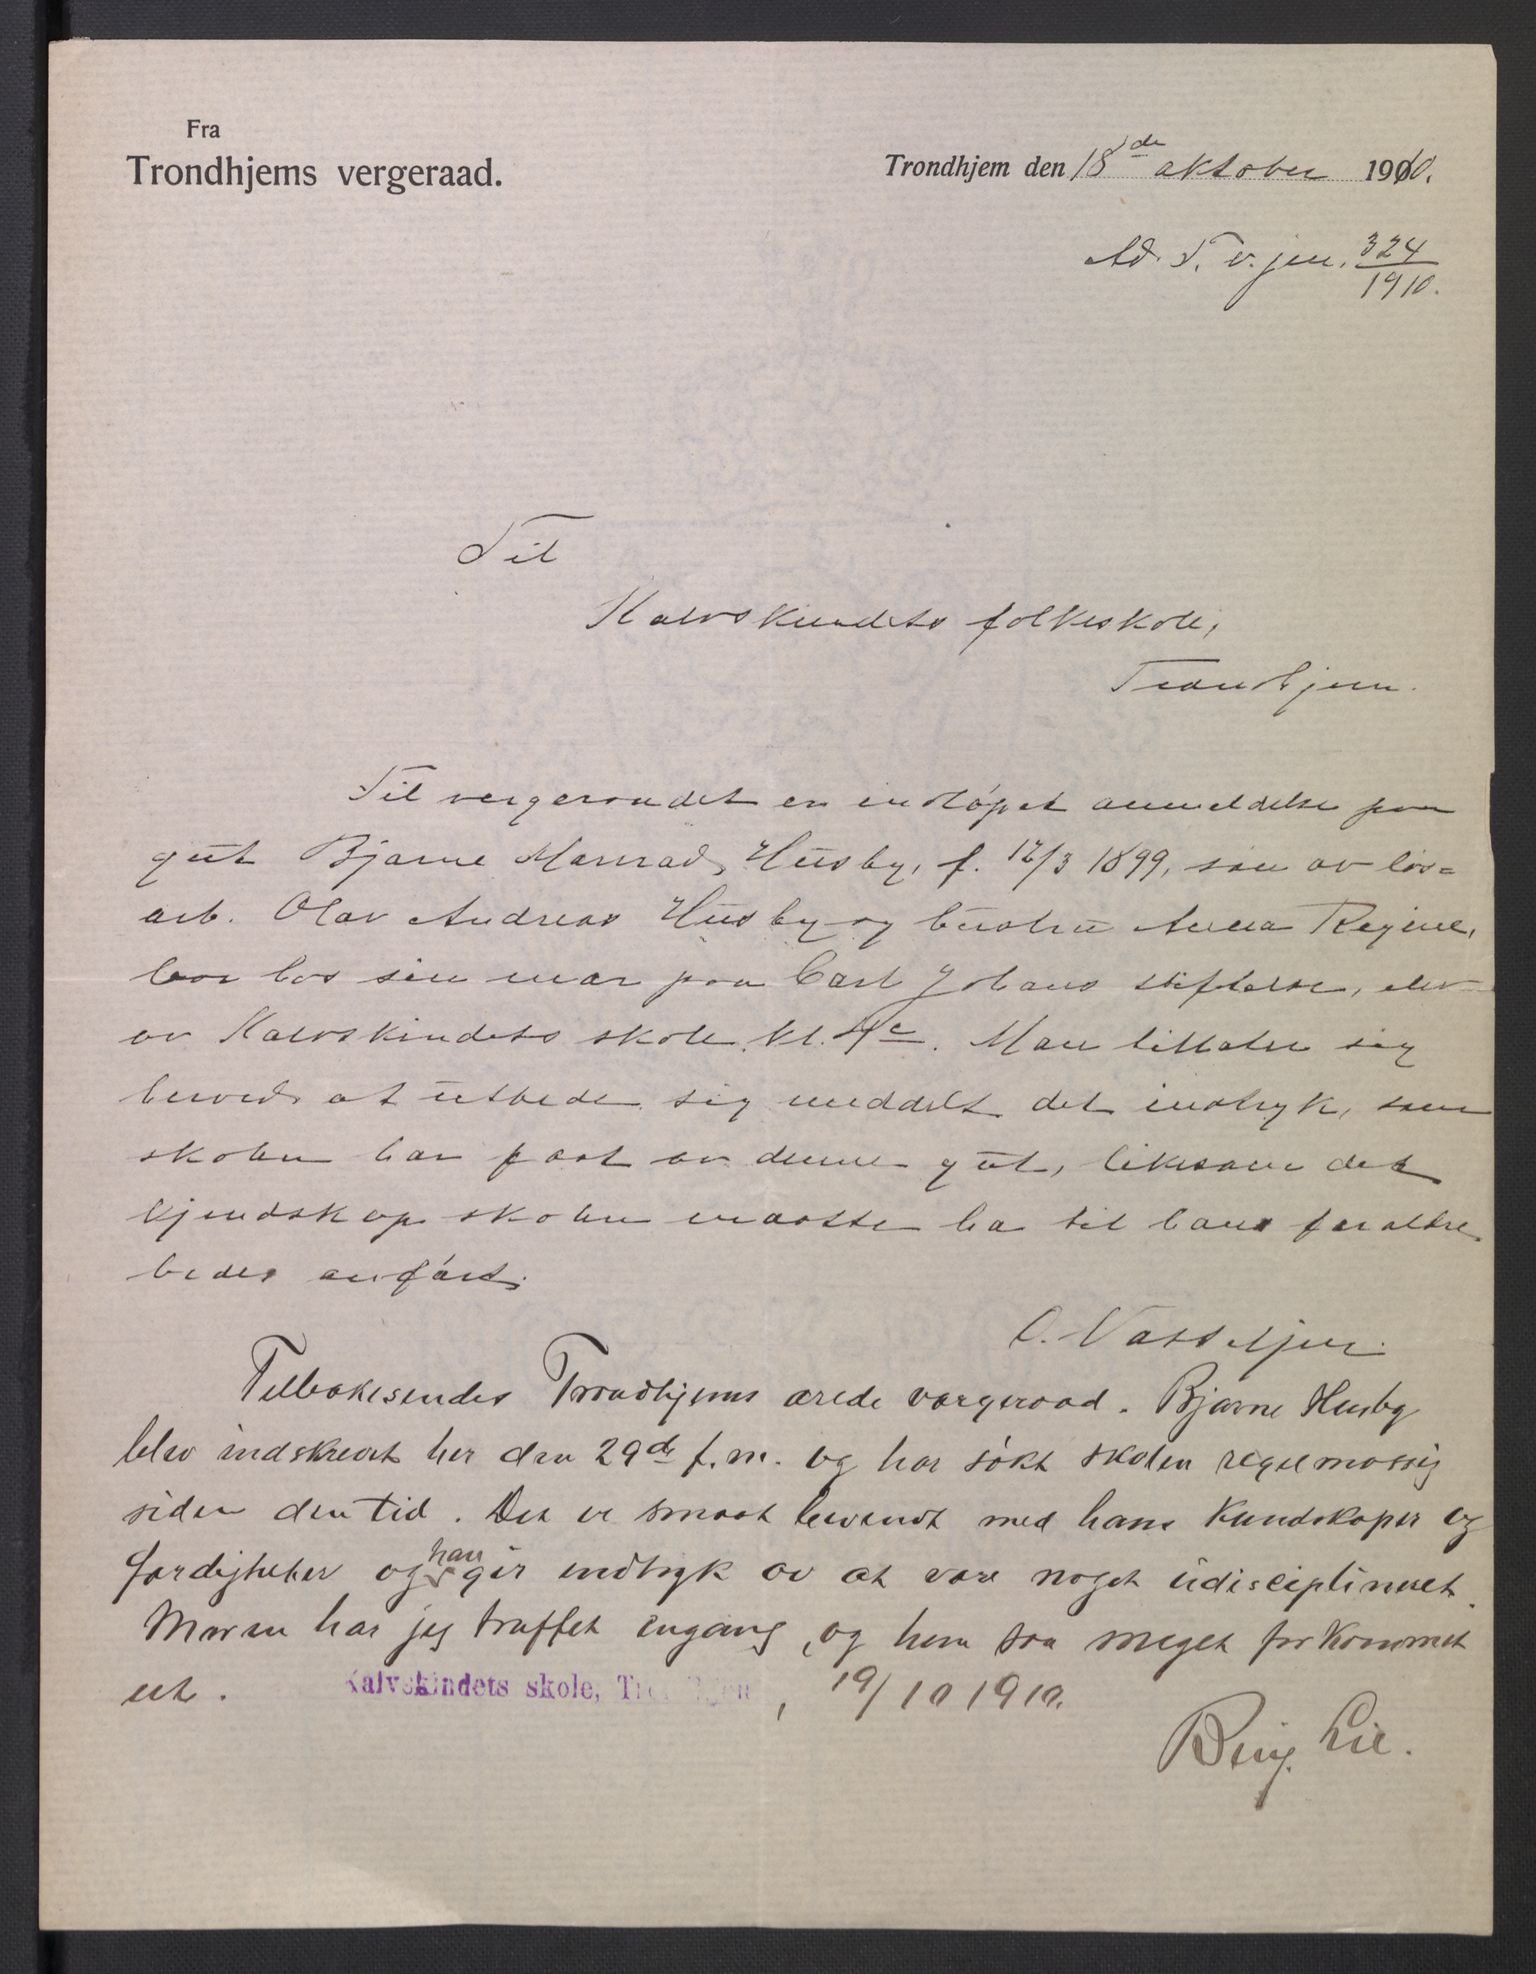 Fra
Trondhjems vergeraad.
Trondhjem den 18de oktober 1910.
Ad. T. v. jnr. 324/1910.
Til
Kalvskindets folkeskole,
Trondhjem.
Til vergeraadet er indløpet anmeldelse paa
gut Bjarne Husby, f. 12/3 1899, søn av løs-
arb. Olav Andreas Husby og hustru Anna Regine,
bor hos sin mor paa Carl Johans stiftelse, elev
av Kalvskindets skole, kl. 4c. Man tillater sig
herved at utbede sig meddelt det indtryk, som
skolen har faat av denne gut, likesom det
kjendskap skolen maatte ha til hans forældre
bedes anført.
O. Vasseljen.
Tilbakesendes Trondhjems ærede vergeraad. Bjarne Husby
blev indskrevet her den 29de f.m. og har søkt skolen regelmæssig
siden den tid. Det er smaat bevendt med hans kundskaper og
færdigheter og han gir indtryk av at være noget udisciplineret.
Moren har jeg truffet engang, og hun saa meget forkommet
ut. Kalvskindets skole, Trondhjem, 19/10 1910.
Lie.